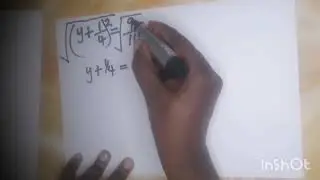 √(y+1/4)² = √9/1
y + 1/4 =
InShOt